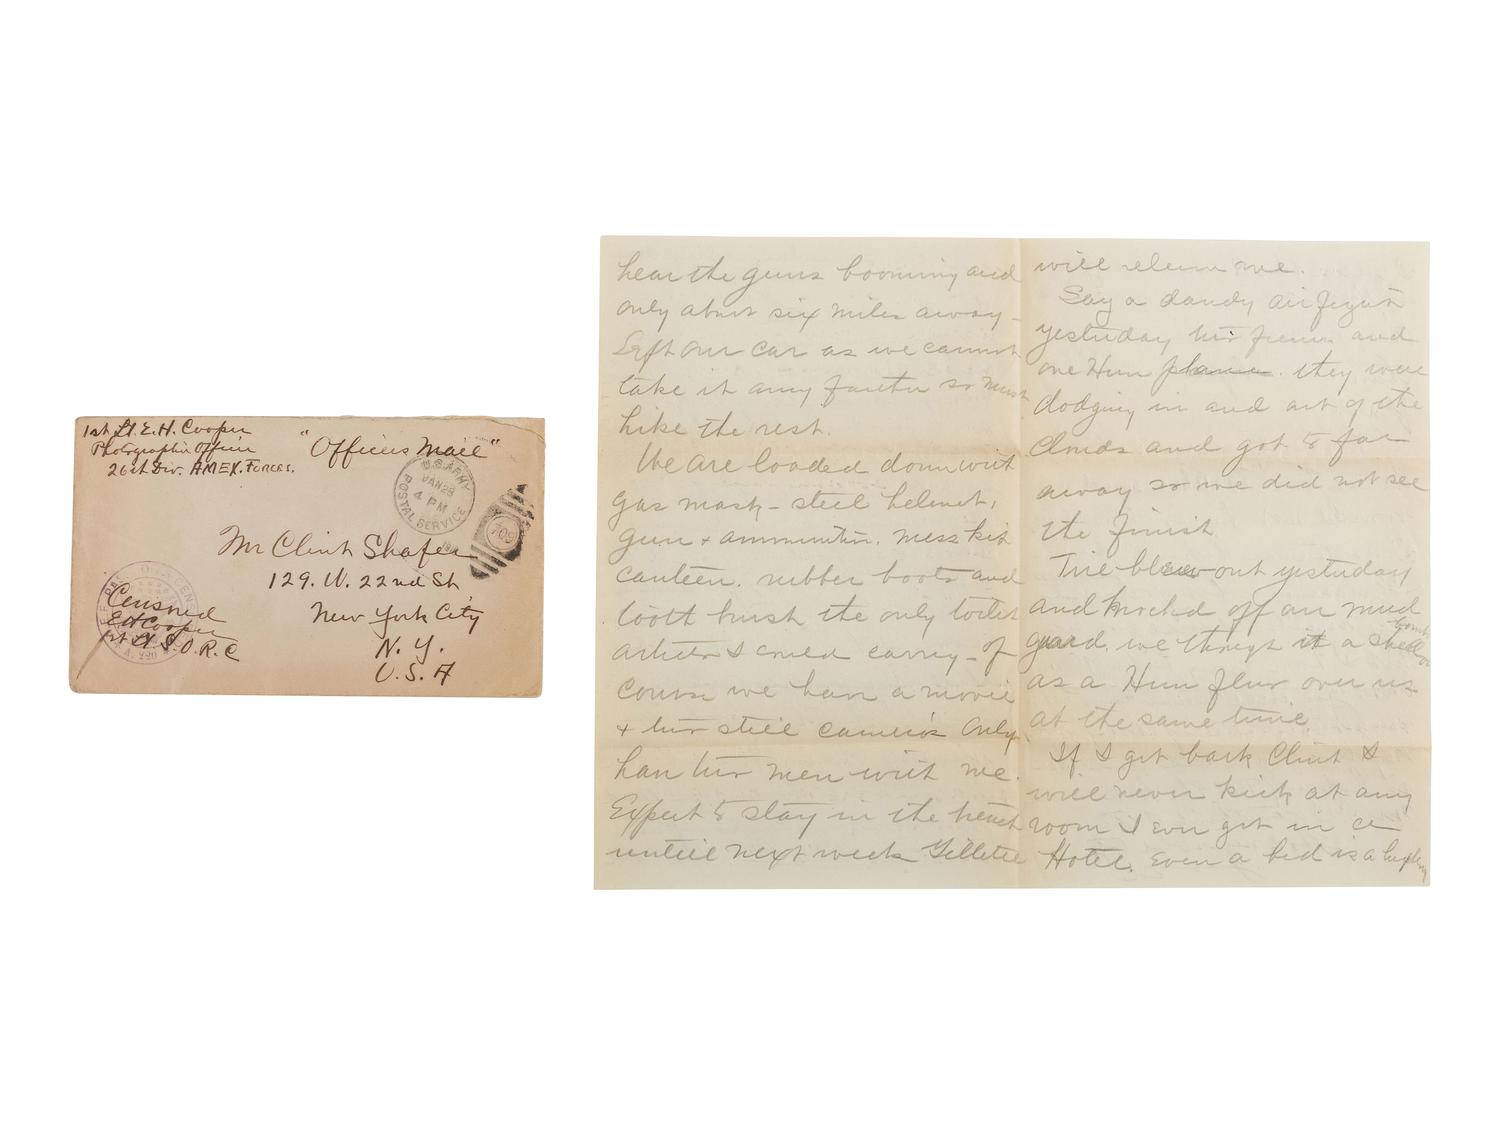 1st Lt. E. H. Cooper
Photographic Officer
26th Div. AMEX. Forces.
"Officers Mail"
U.S. ARMY
POSTAL SERVICE
JAN 28
4 PM
709
Mr Clint Shafer
129. W. 22nd St
New York City
N. Y.
U. S. A
Censored
E H Cooper
1st Lt. S. O. R. C
hear the guns booming and
only about six miles away -
Left our car as we cannot
take it any farther so must
hike the rest.
We are loaded down with
gas mask - steel helmet,
gun + ammunition. mess kit
canteen. rubber boots and
tooth brush the only toilet
articles I could carry - of
course we have a movie
+ two still camera's Only
have two men with me.
Expect to stay in the trench
until next week Gillette
will relieve me.
Say a dandy air fight
yesterday two french and
one Hun plane. they were
dodging in and out of the
clouds and got to far
away so we did not see
the finish
Tire blew out yesterday
and knocked off our mud
guard, we though it a shell or bomb
as a Hun flew over us
at the same time.
If I get back Clint I
will never kick at any
room I ever get in a
Hotel. Even a bed is a luxury